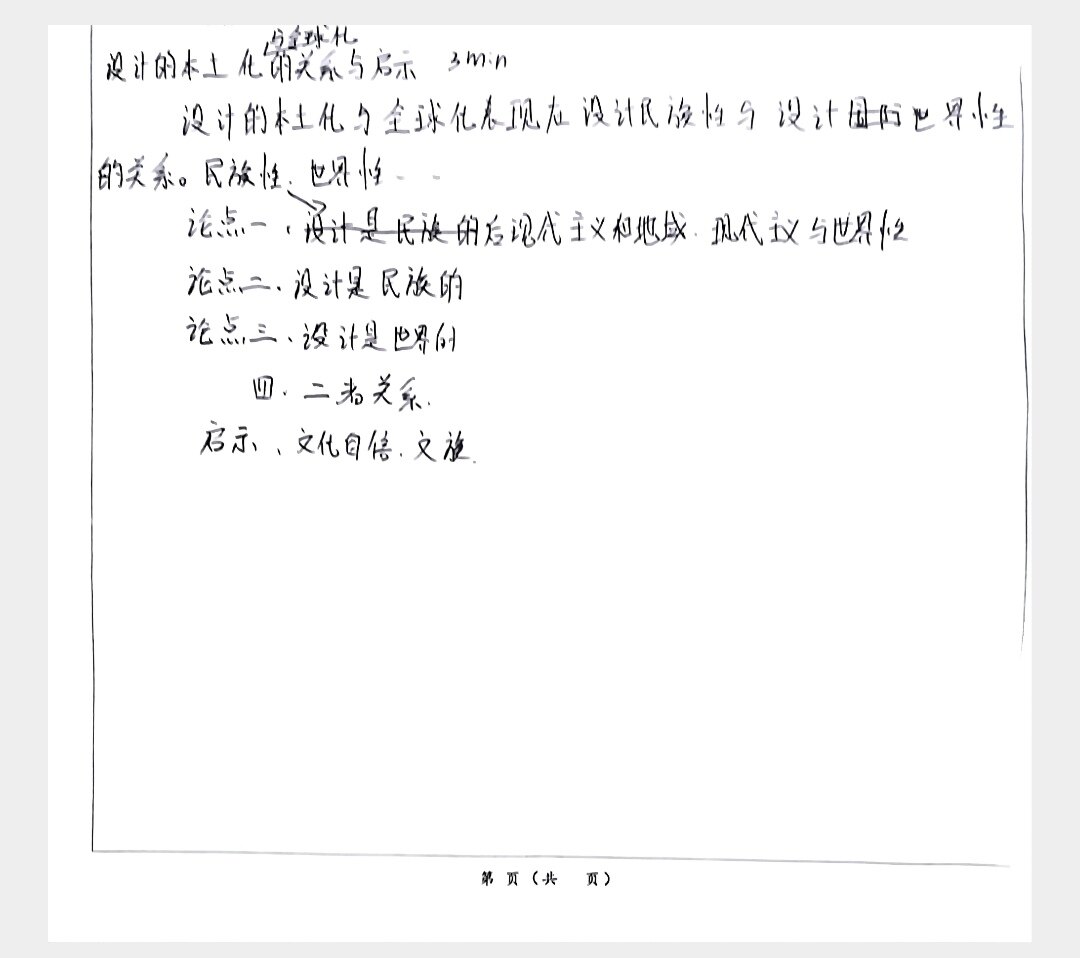 设计的本土化与全球化的关系与启示 3min
设计的本土化与全球化表现在设计民族性与设计国际世界性
的关系。民族性、世界性……
论点一、设计是民族的后现代主义和地域、现代主义与世界性
论点二、设计是民族的
论点三、设计是世界的
四、二者关系.
启示、文化自信、文旅.
第 页(共 页)